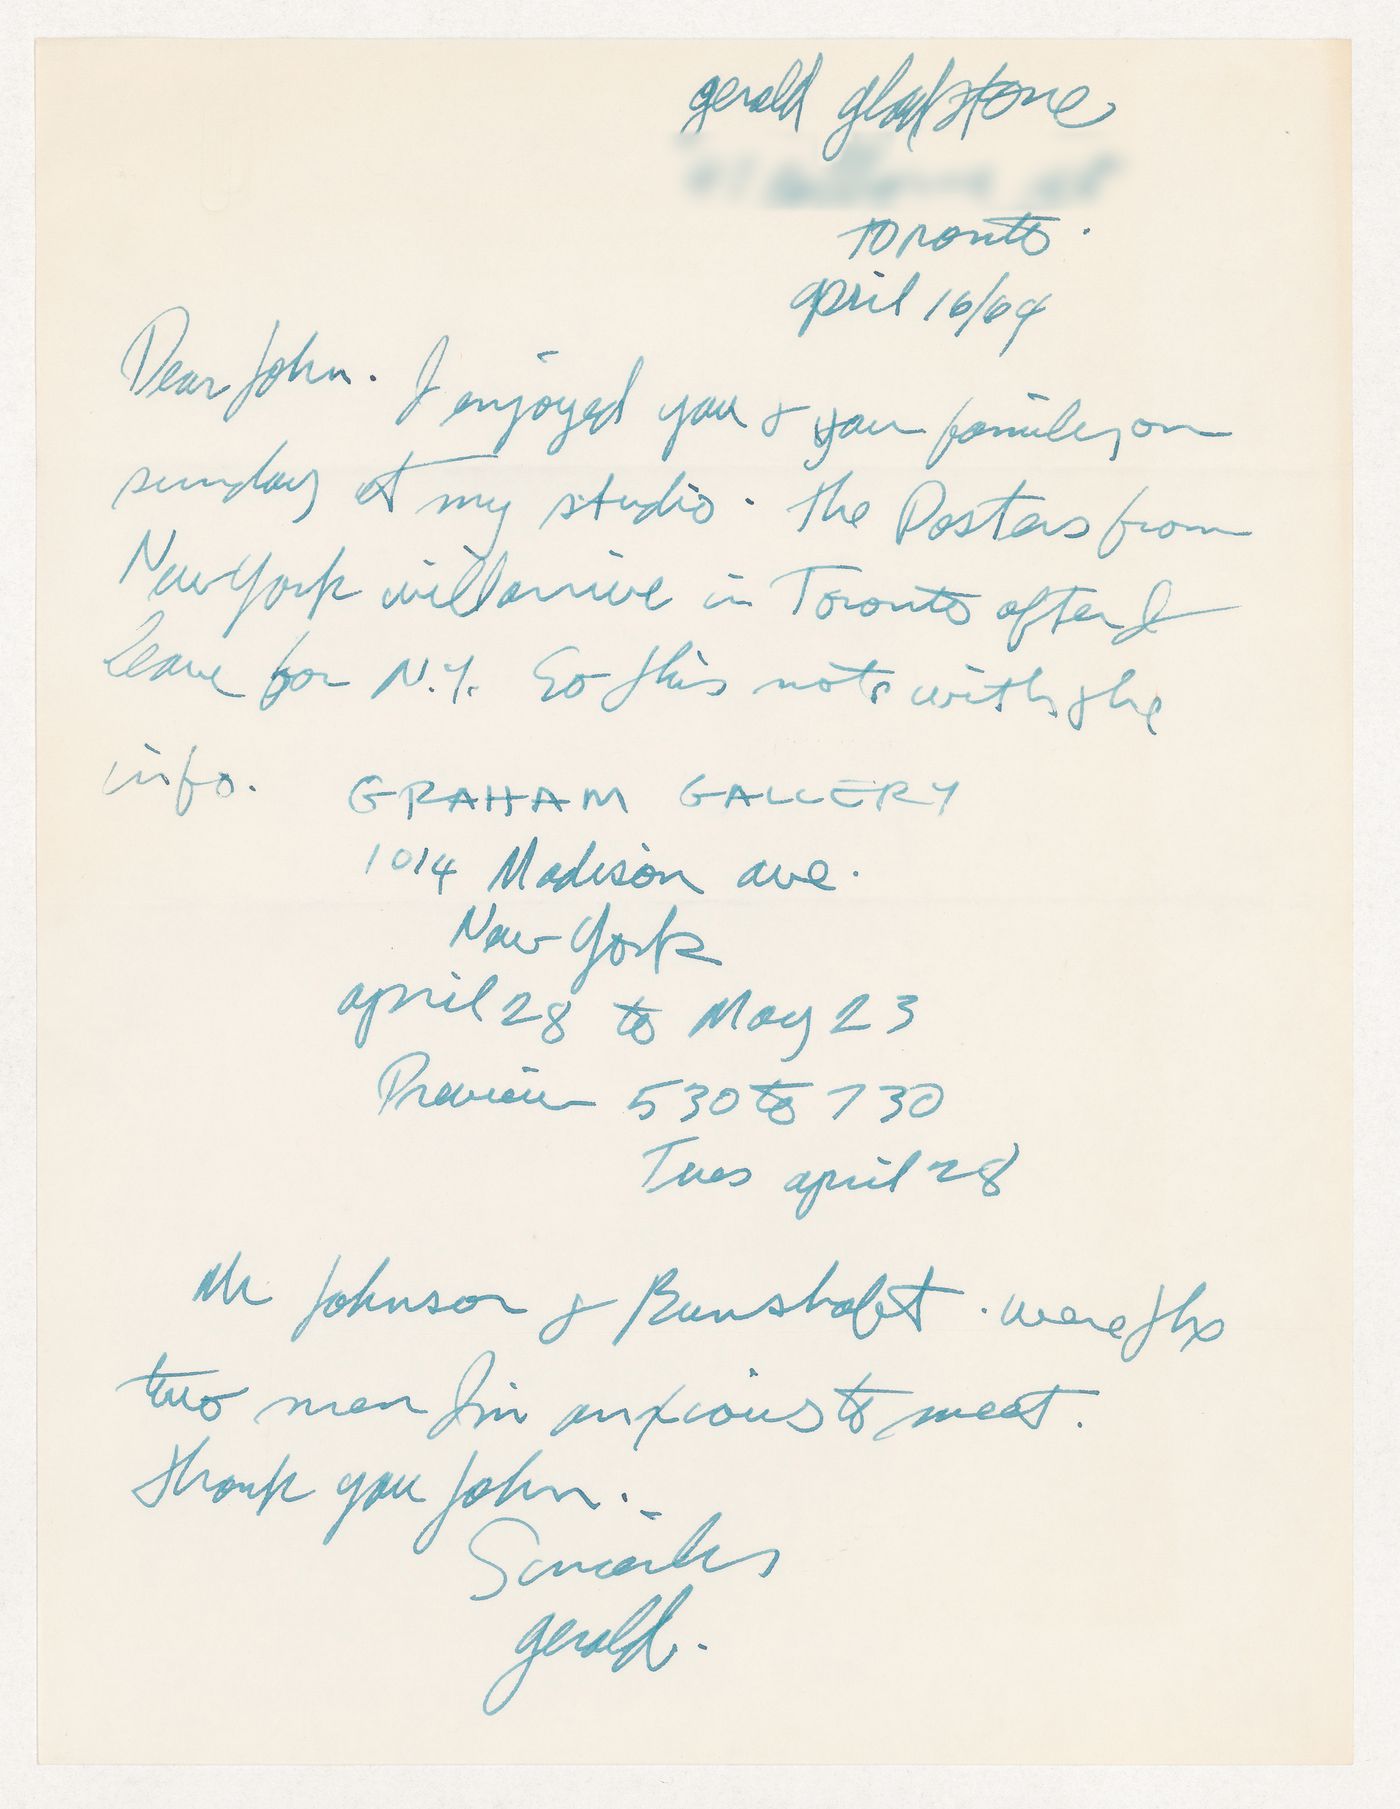 gerald gladstone
Toronto.
april 16/64
Dear John. I enjoyed you & your family on
sunday at my studio. The Posters from
New York will arrive in Toronto after I
leave for N.Y. So this note with the
info. GRAHAM GALLERY
1014 Madison ave.
New York
april 28 to May 23
Preview 530 to 730
Tues april 28
Mr Johnson & Bunshaft. were the
two men I'm anxious to meet.
thank you John.
Sincerely
gerald.